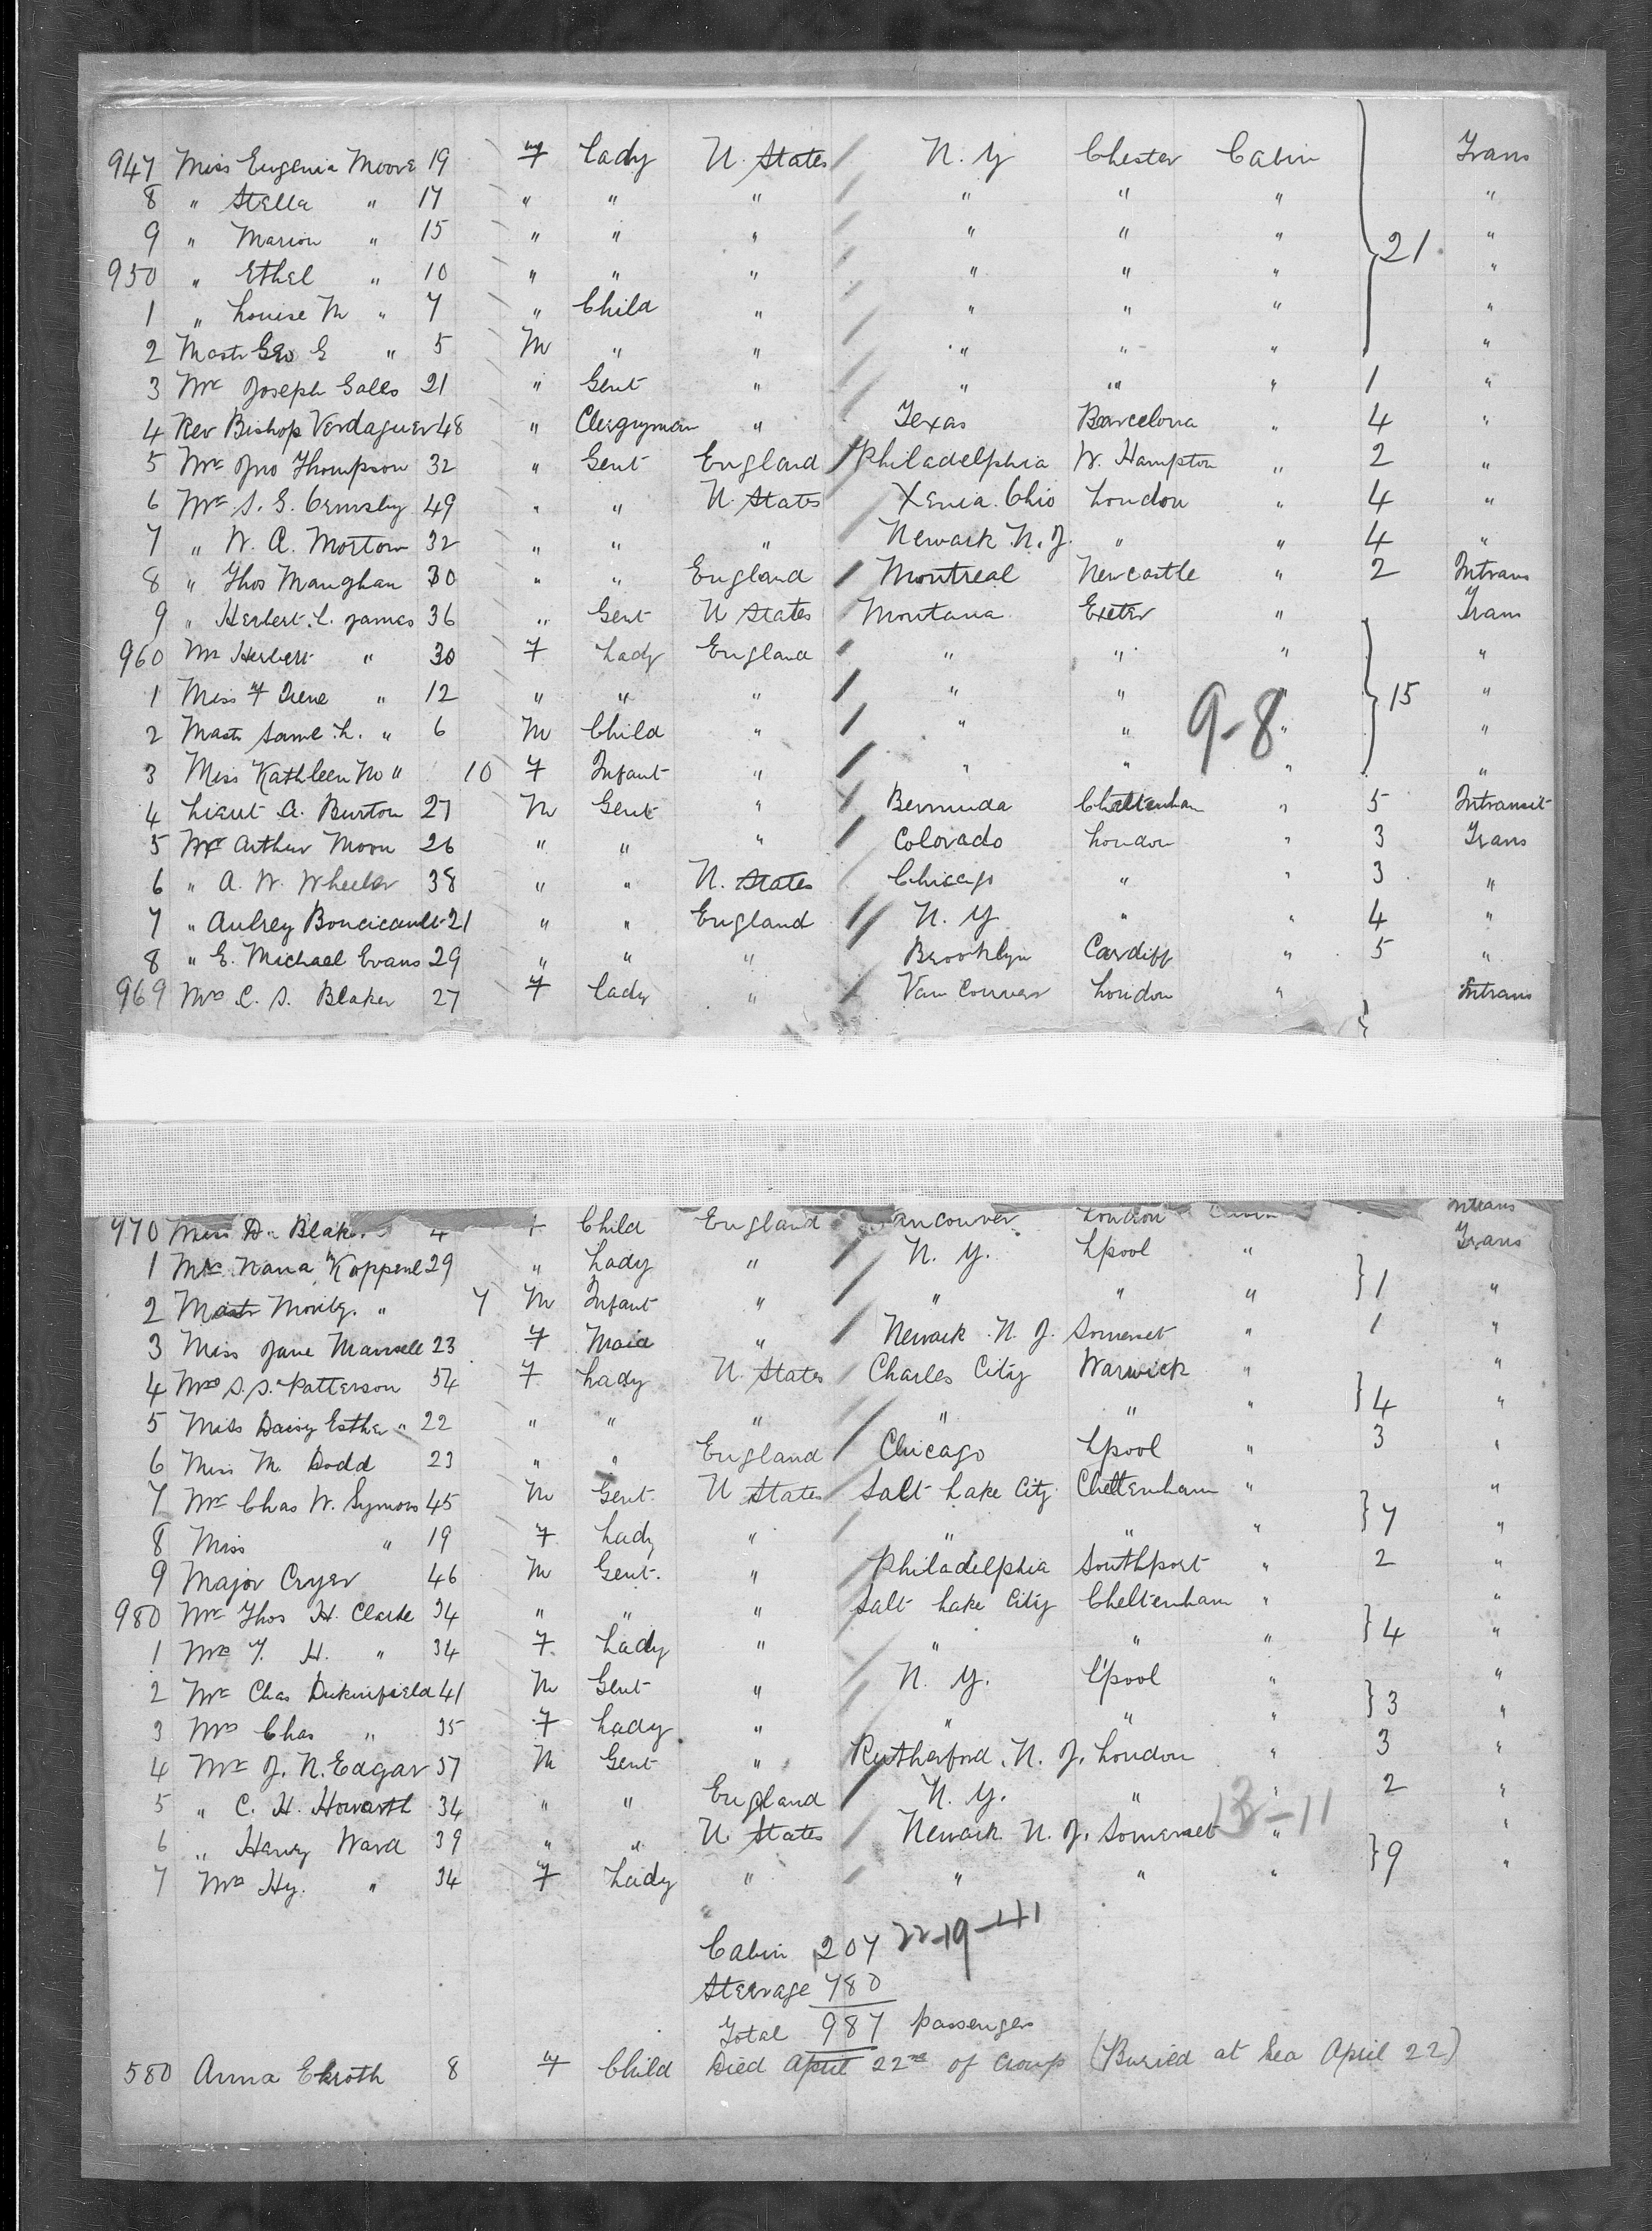 947 Miss Eugenia Moore 19 F Lady U. States N. Y Chester Cabin Trans
8 " Stella " 17 " " " " " " "
9 " Marion " 15 " " " " " " 21 "
950 " Ethel " 10 " " " " " " "
1 " Louise M " 7 " Child " " " " "
2 Mastr Geo G " 5 M " " " " " "
3 Mr Joseph Gales 21 " Gent " " " " 1 "
4 Rev Bishop Verdaguer 48 " Clergyman " Texas Barcelona " 4 "
5 Mr Jno Thompson 32 " Gent England Philadelphia W. Hampton " 2 "
6 Mr S. G. Ormsby 49 " " U. States Xenia. Ohio London " 4 "
7 " W. A. Morton 32 " " " Newark N. J. " " 4 "
8 " Thos Manghan 30 " " England Montreal Newcastle " 2 Intrans
9 " Herbert. L. James 36 " Gent U States Montana Exeter " Trans
960 Mrs Herbert " 30 F Lady England " " " "
1 Miss F Irene " 12 " " " " " " 15 "
2 Mastr Saml. L. " 6 M Child " " " 9-8 " "
3 Miss Kathleen M " 10 F Infant " " " " "
4 Lieut A. Burton 27 M Gent " Bermuda Cheltenham " 5 Intransit
5 Mr Arthur Moon 26 " " " Colorado London " 3 Trans
6 " A. W. Wheeler 38 " " U. States Chicago " " 3 "
7 " Aubrey Boucicault 21 " " England N. Y " " 4 "
8 " E. Michael Evans 29 " " " Brooklyn Cardiff " 5 "
969 Mrs C. S. Blaker 27 F Lady " Van Couver London " Intrans
970 Miss D. Blaker 4 F Child England Vancouver London Cabin Intrans
1 Mrs Nana Koppenl 29 " Lady " N. Y. Lpool " Trans
2 Mastr Moritz. " 7 M Infant " " " " 1 "
3 Miss Jane Mansell 23 F Maid " Newark. N. J. Somerset " 1 "
4 Mrs S. S. Patterson 54 F Lady U. States Charles City Warwick " "
5 Miss Daisy Esther " 22 " " " " " " 4 "
6 Miss M. Dodd 23 " " England Chicago Lpool " 3 "
7 Mr Chas W. Symons 45 M Gent. U States Salt Lake City Cheltenham " "
8 Miss " 19 F Lady " " " " 7 "
9 Major Cryer 46 M Gent. " Philadelphia Southport " 2 "
980 Mr Thos H. Clarke 34 " " " Salt Lake City Cheltenham " "
1 Mrs T. H. " 34 F Lady " " " " 4 "
2 Mr Chas Dukinfield 41 M Gent " N. Y. L'pool " "
3 Mrs Chas " 35 F Lady " " " " 3 "
4 Mr J. N. Edgar 37 M Gent " Rutherford. N. J. London " 3 "
5 " C. H. Howarth 34 " " England N. Y. " " 2 "
6 " Henry Ward 39 " " U. States Newark N. J. Somerset " "
7 Mrs Hy. " 34 F Lady " " " " 9 "
Cabin 207 22-19-41
Steerage 780
Total 987 passengers
580 Anna Ekroth 8 F Child Died April 22nd of Croup (Buried at Sea April 22)